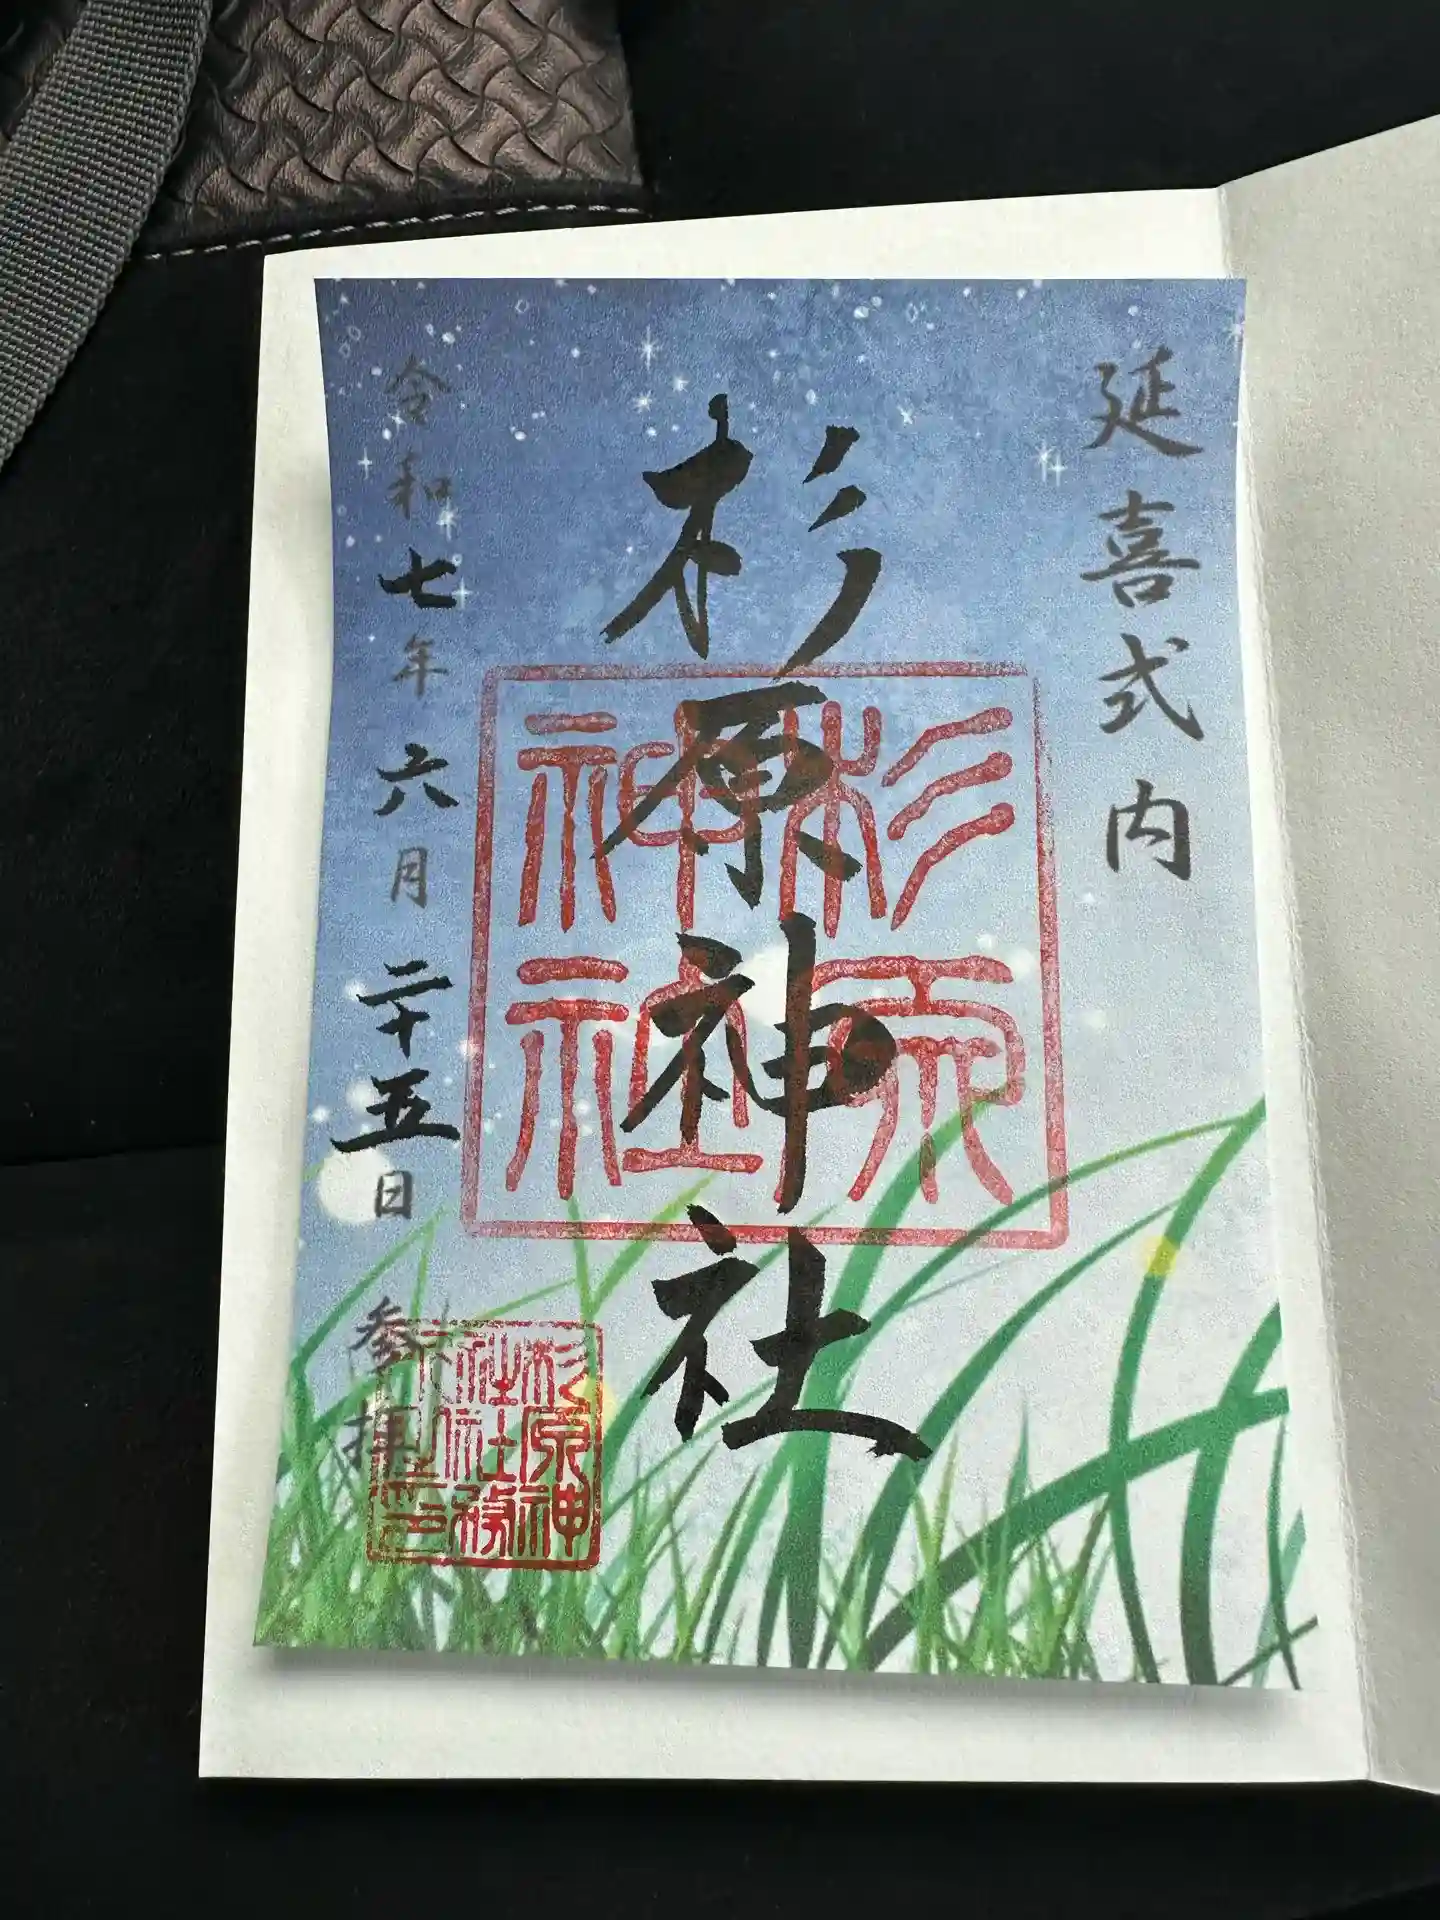 延喜式内
杉原神社
杉原神社
令和七年六月二十五日
参拝
杉原神社社務所之印